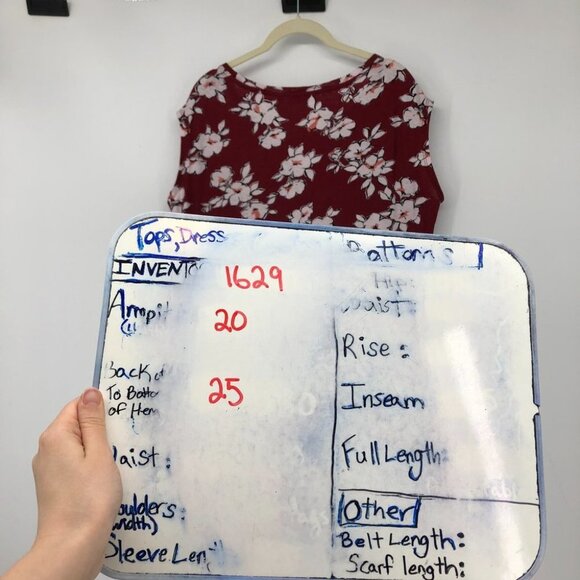 Tops, Dress
INVENTO 1629
Armpit 20
Back of 25
To Botto
of Hem
Waist:
Shoulders:
(width)
Sleeve Len
Bottoms
Hip
Waist:
Rise:
Inseam
Full Length:
Other
Belt Length:
Scarf length: